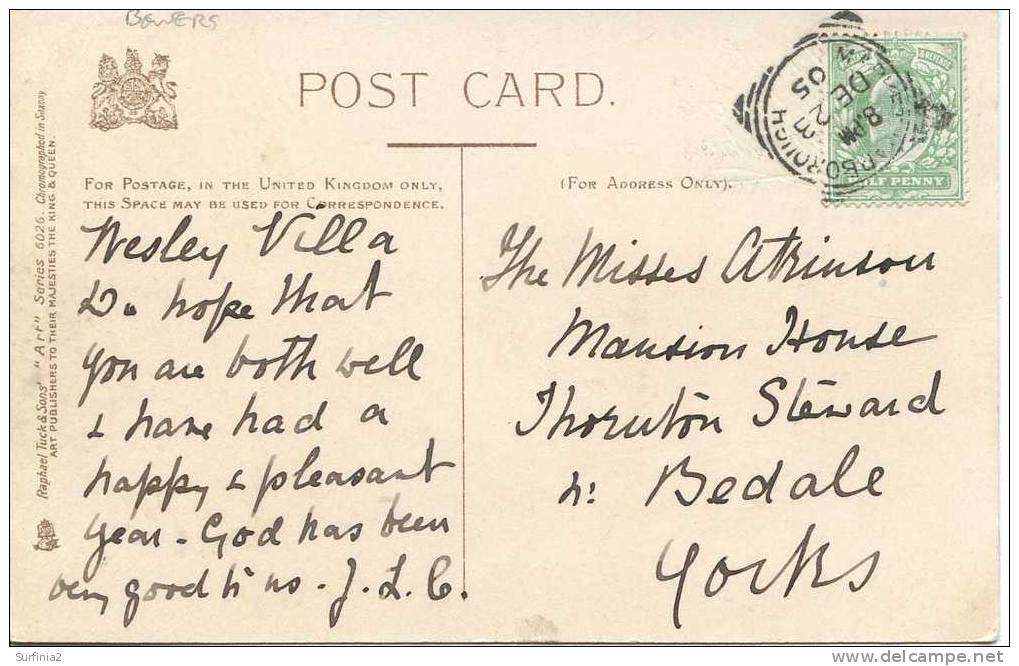 BOWERS
POST CARD.
FOR POSTAGE, IN THE UNITED KINGDOM ONLY,
THIS SPACE MAY BE USED FOR CORRESPONDENCE.
(FOR ADDRESS ONLY).
Raphael Tuck & Sons' "Art" Series 6026. Chromographed in Saxony
ART PUBLISHERS TO THEIR MAJESTIES THE KING & QUEEN.
Wesley Villa
Do hope that
you are both well
& have had a
happy & pleasant
year - God has been
very good to us - J. L. C.
The Misses Atkinson
Mansion House
Thornton Steward
nr Bedale
Yorks
8 PM
DE 23
05
HALF PENNY
Surfinia2
www.delcampe.net